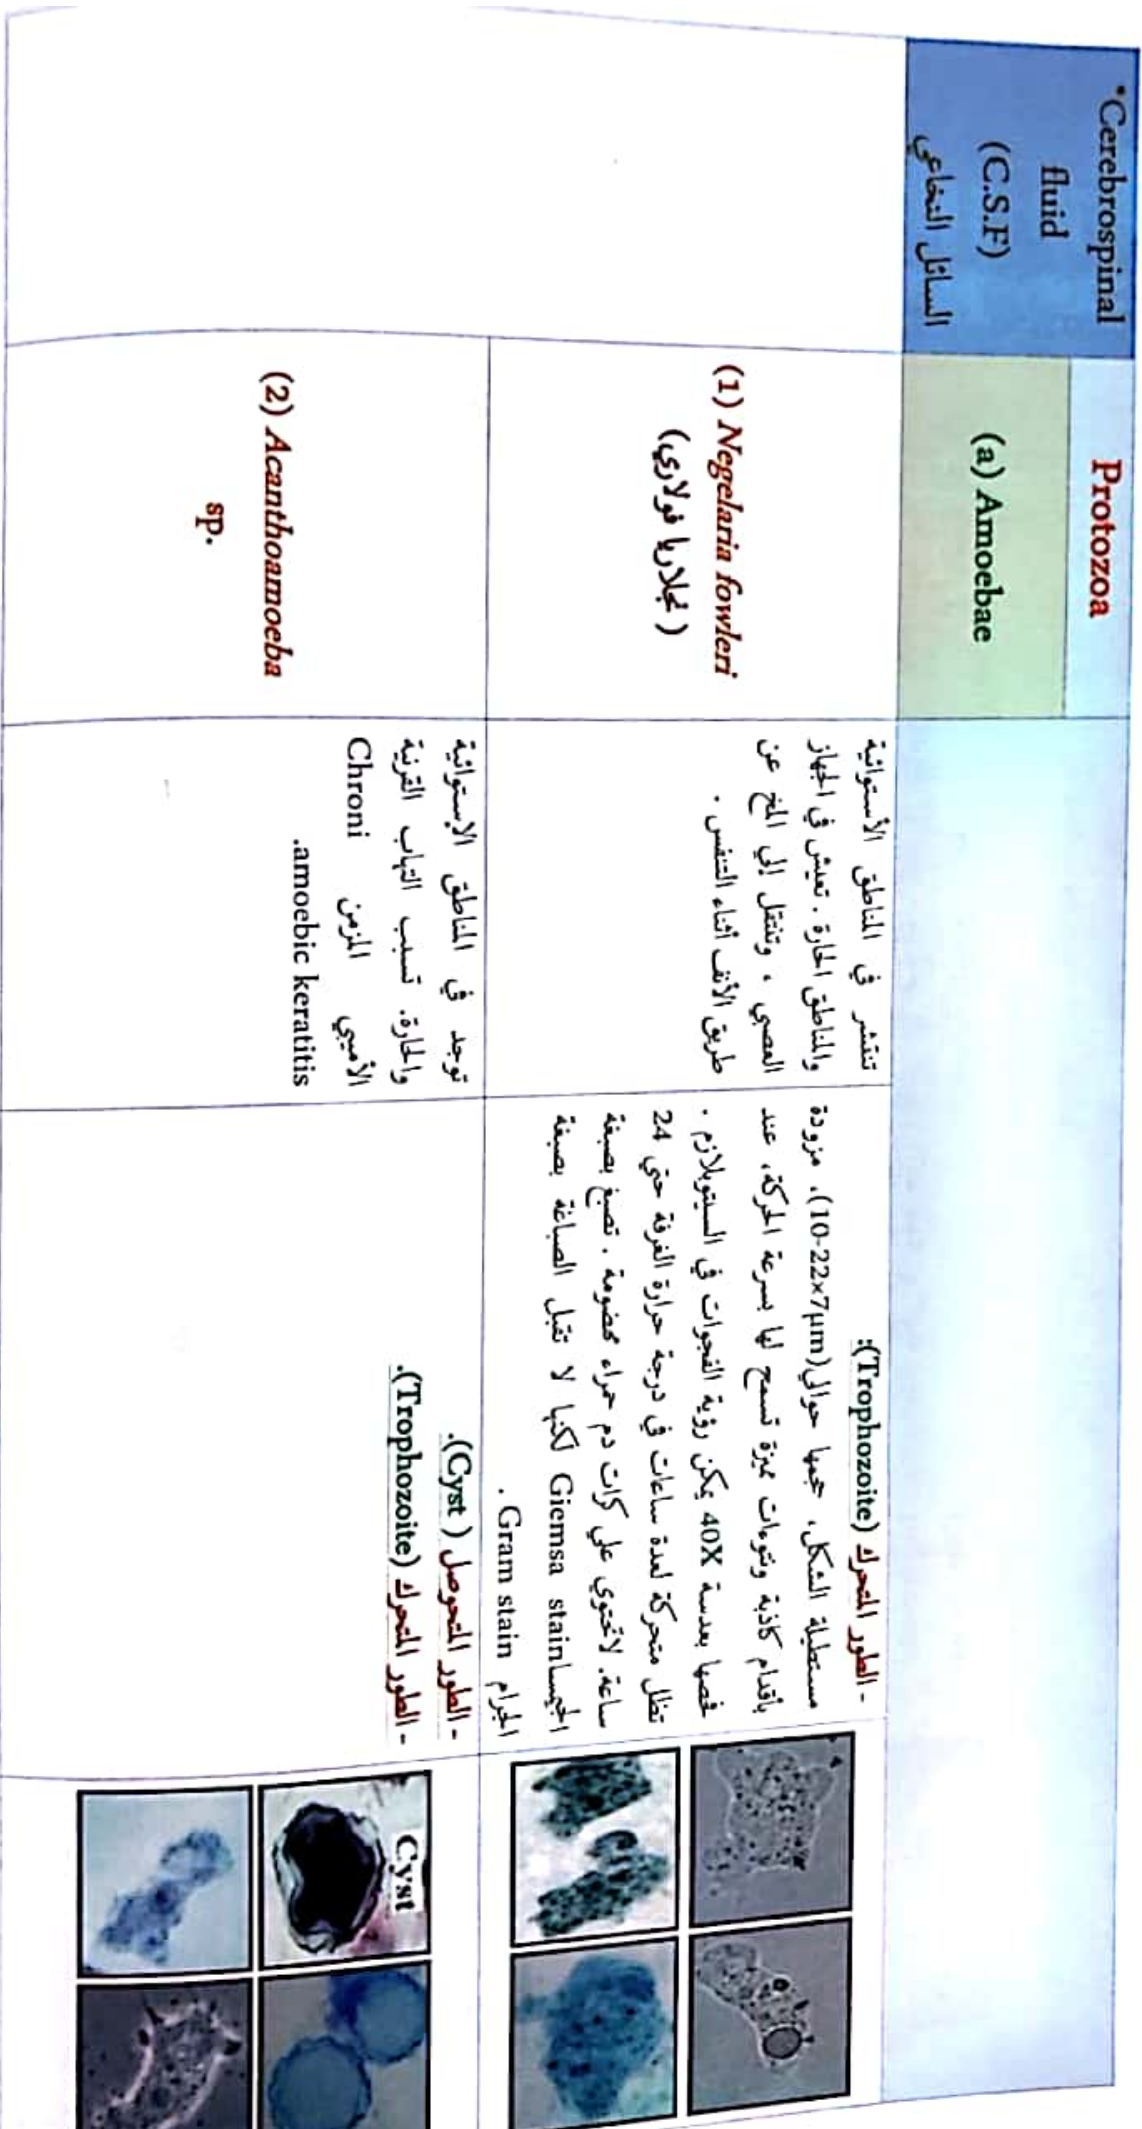 *Cerebrospinal
fluid
(C.S.F)
السائل النخاعي
Protozoa
(a) Amoebae
(1) Negelaria fowleri
(نجلاريا فولاري)
تنتشر في المناطق الأستوائية
والمناطق الحارة. تعيش في الجهاز
العصبي ، وتنتقل إلي المخ عن
طريق الأنف أثناء التنفس .
- الطور المتحرك (Trophozoite):
مستطيلة الشكل، حجمها حوالي(10-22x7µm)، مزودة
بأقدام كاذبة ونتوءات مميزة تسمح لها بسرعة الحركة، عند
فحصها بعدسة 40X يمكن رؤية الفجوات في السيتوبلازم .
تظل متحركة لعدة ساعات في درجة حرارة الغرفة حتي 24
ساعة. لاتحتوي علي كرات دم حمراء مهضومة . تصبغ بصبغة
الجيمساGiemsa stain لكنها لا تقبل الصباغة بصبغة
الجرام Gram stain .
(2) Acanthoamoeba
sp.
توجد في المناطق الإستوائية
والحارة. تسبب التهاب القرنية
الأميبي المزمن Chroni
amoebic keratitis.
- الطور المتحوصل ( Cyst).
- الطور المتحرك (Trophozoite).
Cyst